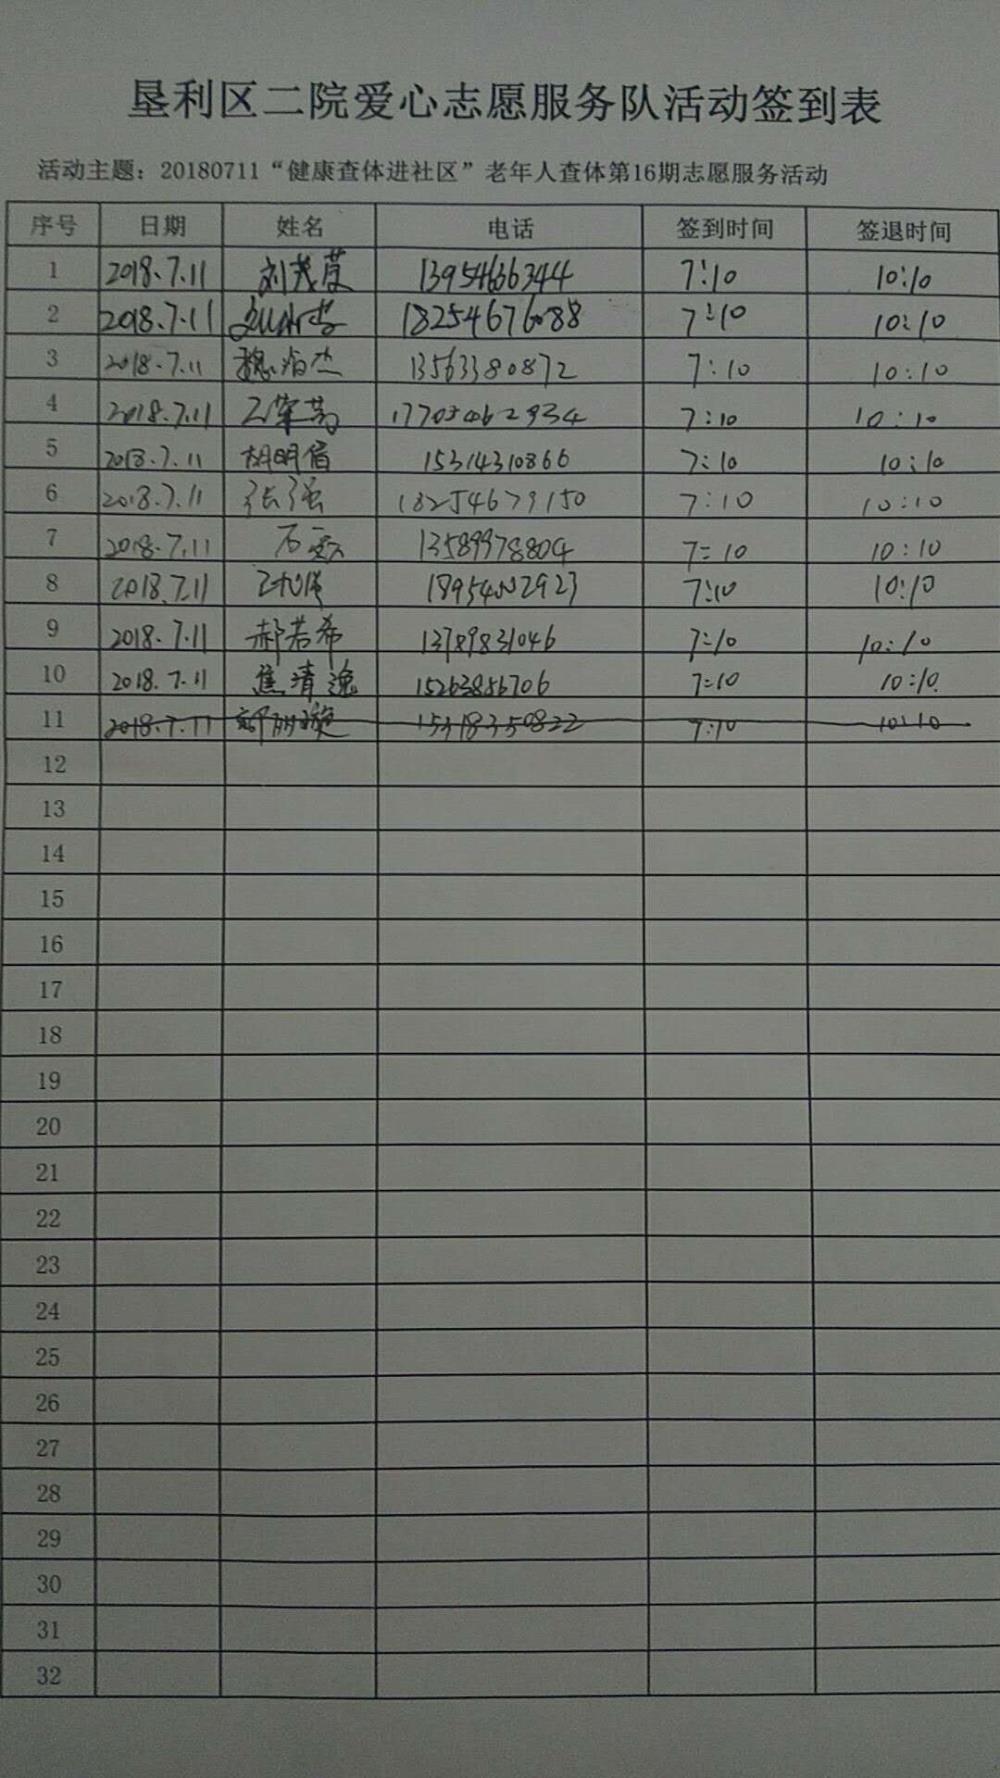 垦利区二院爱心志愿服务队活动签到表
活动主题：20180711“健康查体进社区”老年人查体第16期志愿服务活动
序号 日期 姓名 电话 签到时间 签退时间
1 2018.7.11 刘茂蔓 13954636344 7:10 10:10
2 2018.7.11 18254676088 7:10 10:10
3 2018.7.11 13563380872 7:10 10:10
4 2018.7.11 7:10 10:10
5 2018.7.11 胡明信 15314310866 7:10 10:10
6 2018.7.11 张强 18254679150 7:10 10:10
7 2018.7.11 13589978804 7:10 10:10
8 2018.7.11 7:10 10:10
9 2018.7.11 郝若希 13789831046 7:10 10:10
10 2018.7.11 焦清逸 15263856706 7:10 10:10
11 2018.7.11 15318350822 7:10 10:10
12
13
14
15
16
17
18
19
20
21
22
23
24
25
26
27
28
29
30
31
32